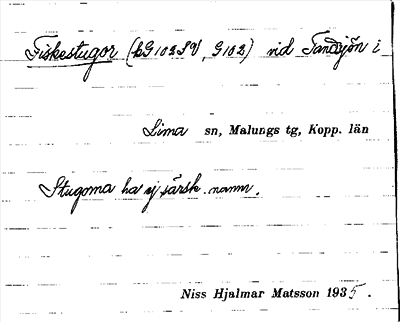 Fiskestugor (kG102SV, G102) vid Tandsjön i
Lima sn, Malungs tg, Kopp. län
Stugorna ha ej särsk. namn.
Niss Hjalmar Matsson 1935.